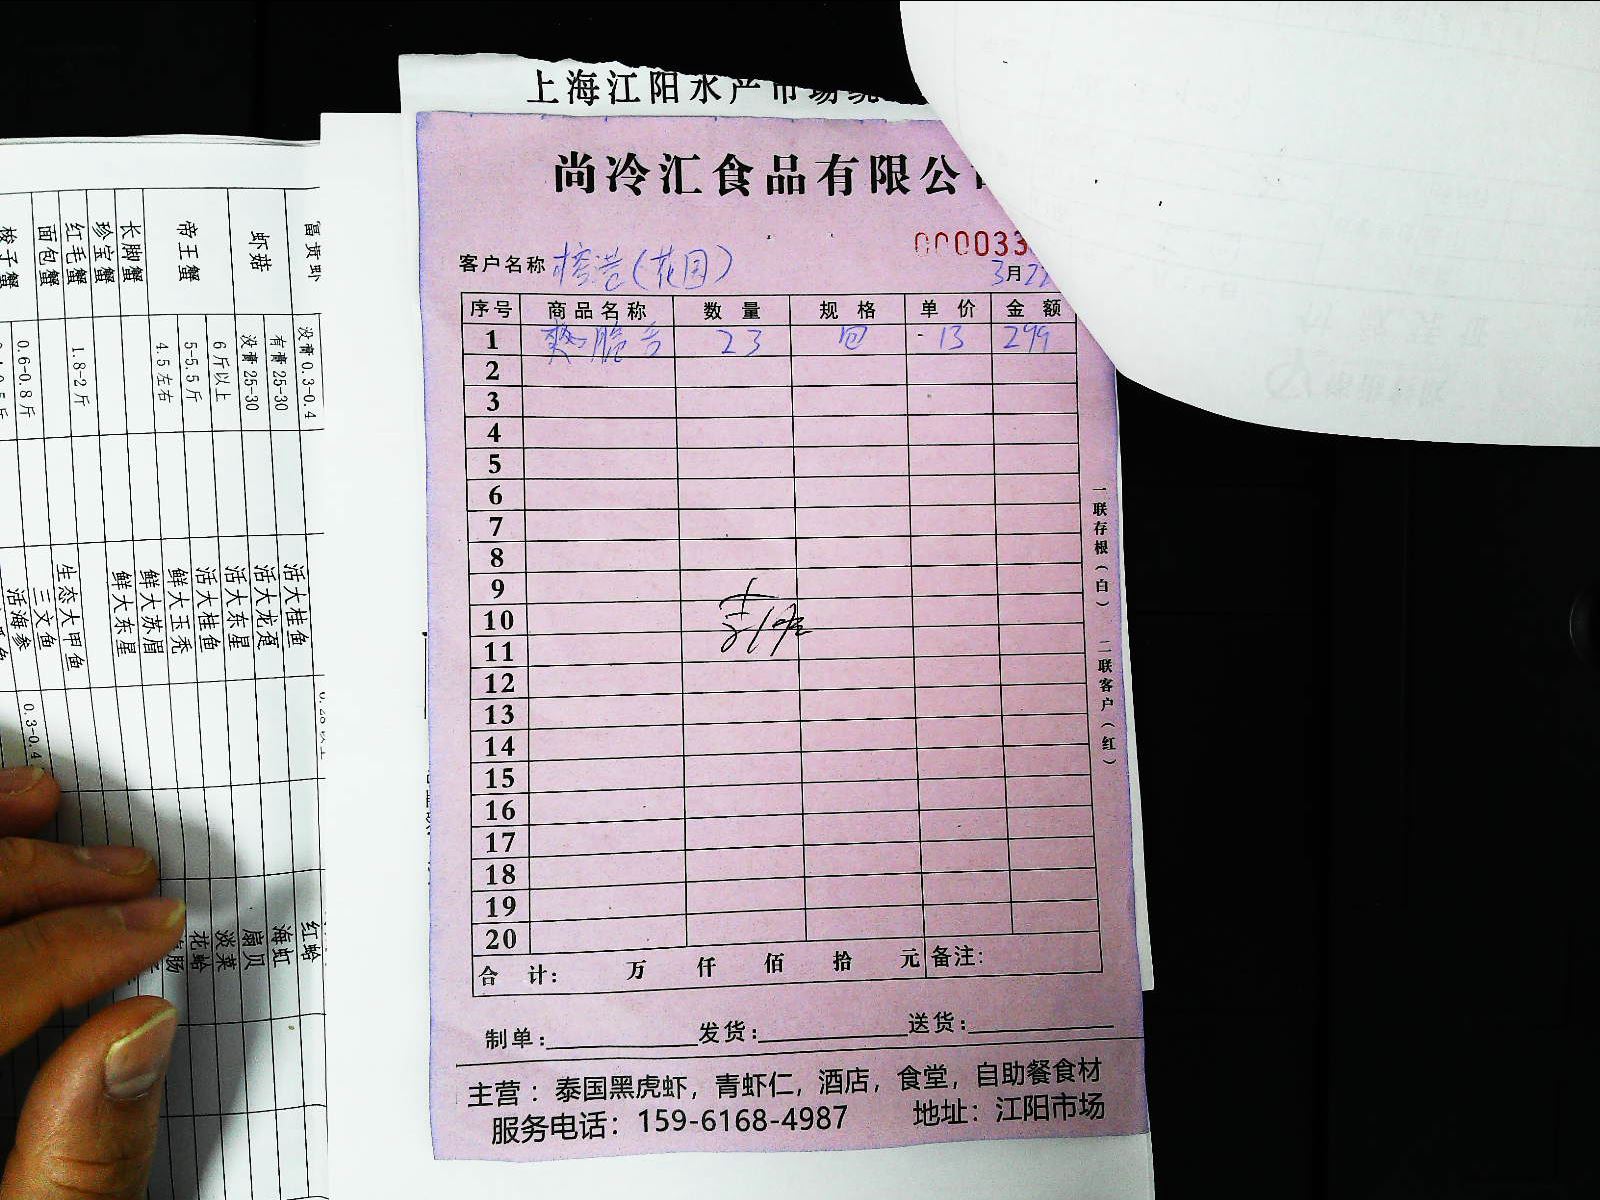 上海江阳水产市场
尚冷汇食品有限公
000033
客户名称 (花园)
3月22
序号 商品名称 数量 规格 单价 金额
1 爽脆舌 23 包 13 299
2
3
4
5
6
7
8
9
10
11
12
13
14
15
16
17
18
19
20
合计: 万 仟 佰 拾 元 备注:
制单: 发货: 送货:
主营：泰国黑虎虾，青虾仁，酒店，食堂，自助餐食材
服务电话：159-6168-4987 地址：江阳市场
一联存根(白) 二联客户(红)
富贵虾 没膏0.3-0.4 活大桂鱼 红蛤
虾菇 有膏25-30 活大龙趸 海虹
没膏25-30 活大东星 扇贝
帝王蟹 6斤以上 活大桂鱼 淡菜
5-5.5斤 鲜大玉秃 花蛤
4.5左右 鲜大苏眉 肠
长脚蟹 鲜大东星
珍宝蟹
红毛蟹 1.8-2斤 生态大甲鱼
面包蟹 三文鱼 0.3-0.4
梭子蟹 0.6-0.8斤 活海参